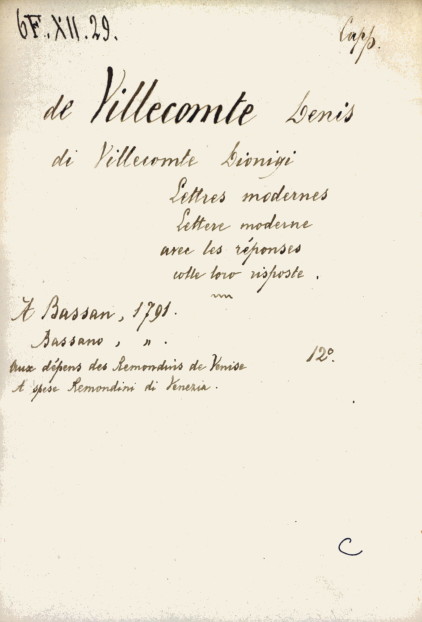 6F.XII.29.
Capp.
de Villecomte Denis
di Villecomte Dionigi
Lettres modernes
Lettere moderne
avec les réponses
colle loro risposte.
A Bassan, 1791.
Bassano, ".
12º.
Aux dépens des Remondinis de Venise
A spese Remondini di Venezia.
C